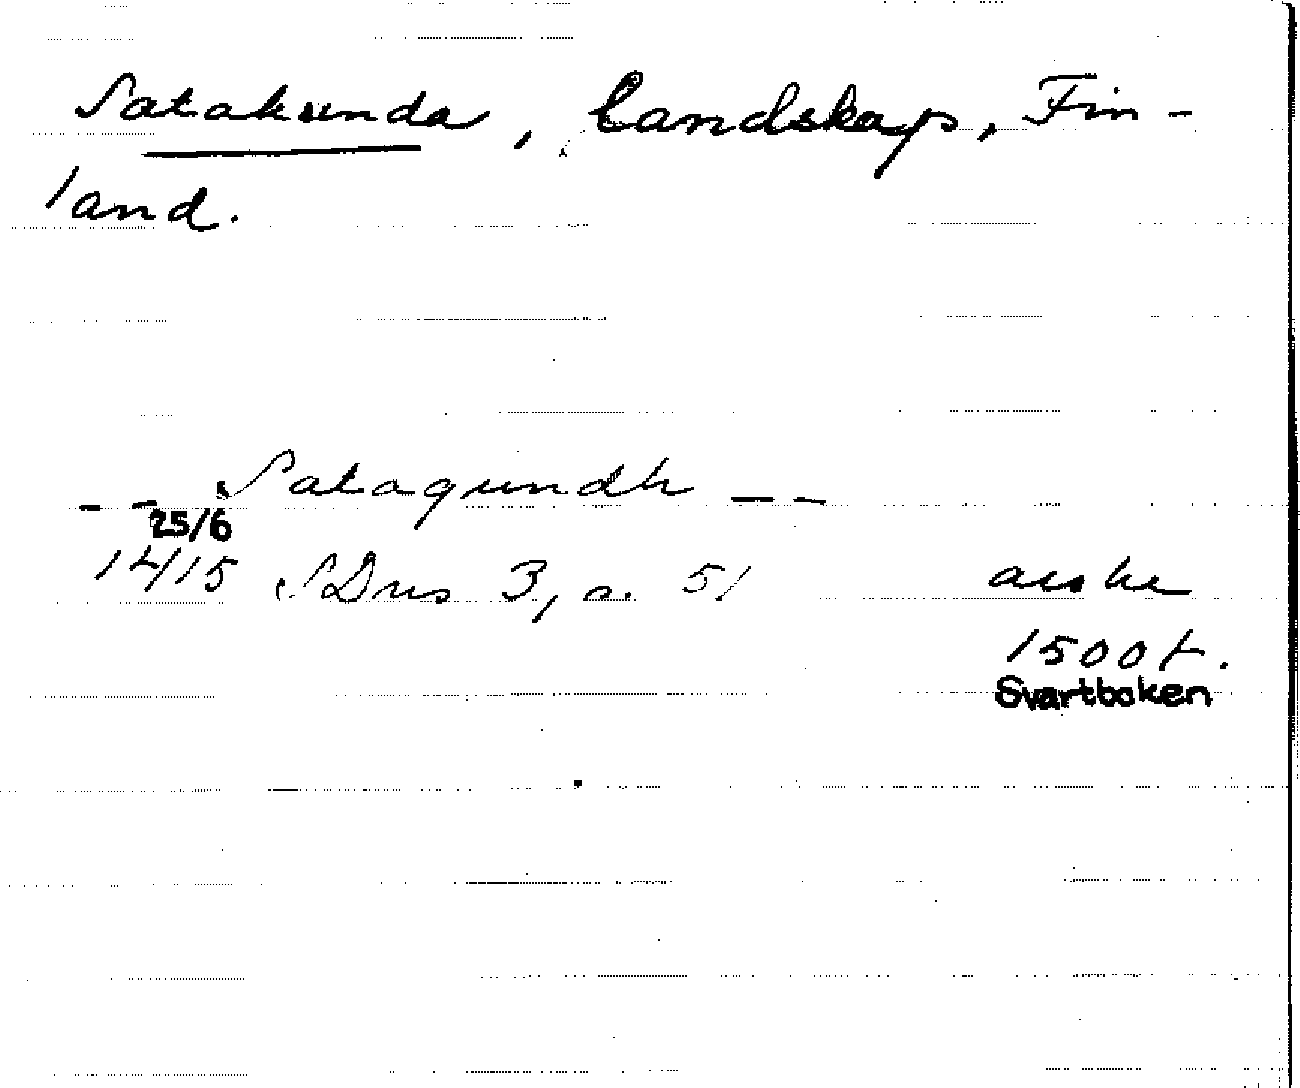 Satakunda, landskap, Fin-
land.
-- Satagundh --
25/6
1415 SDns 3, s. 51 avskr
1500t.
Svartboken